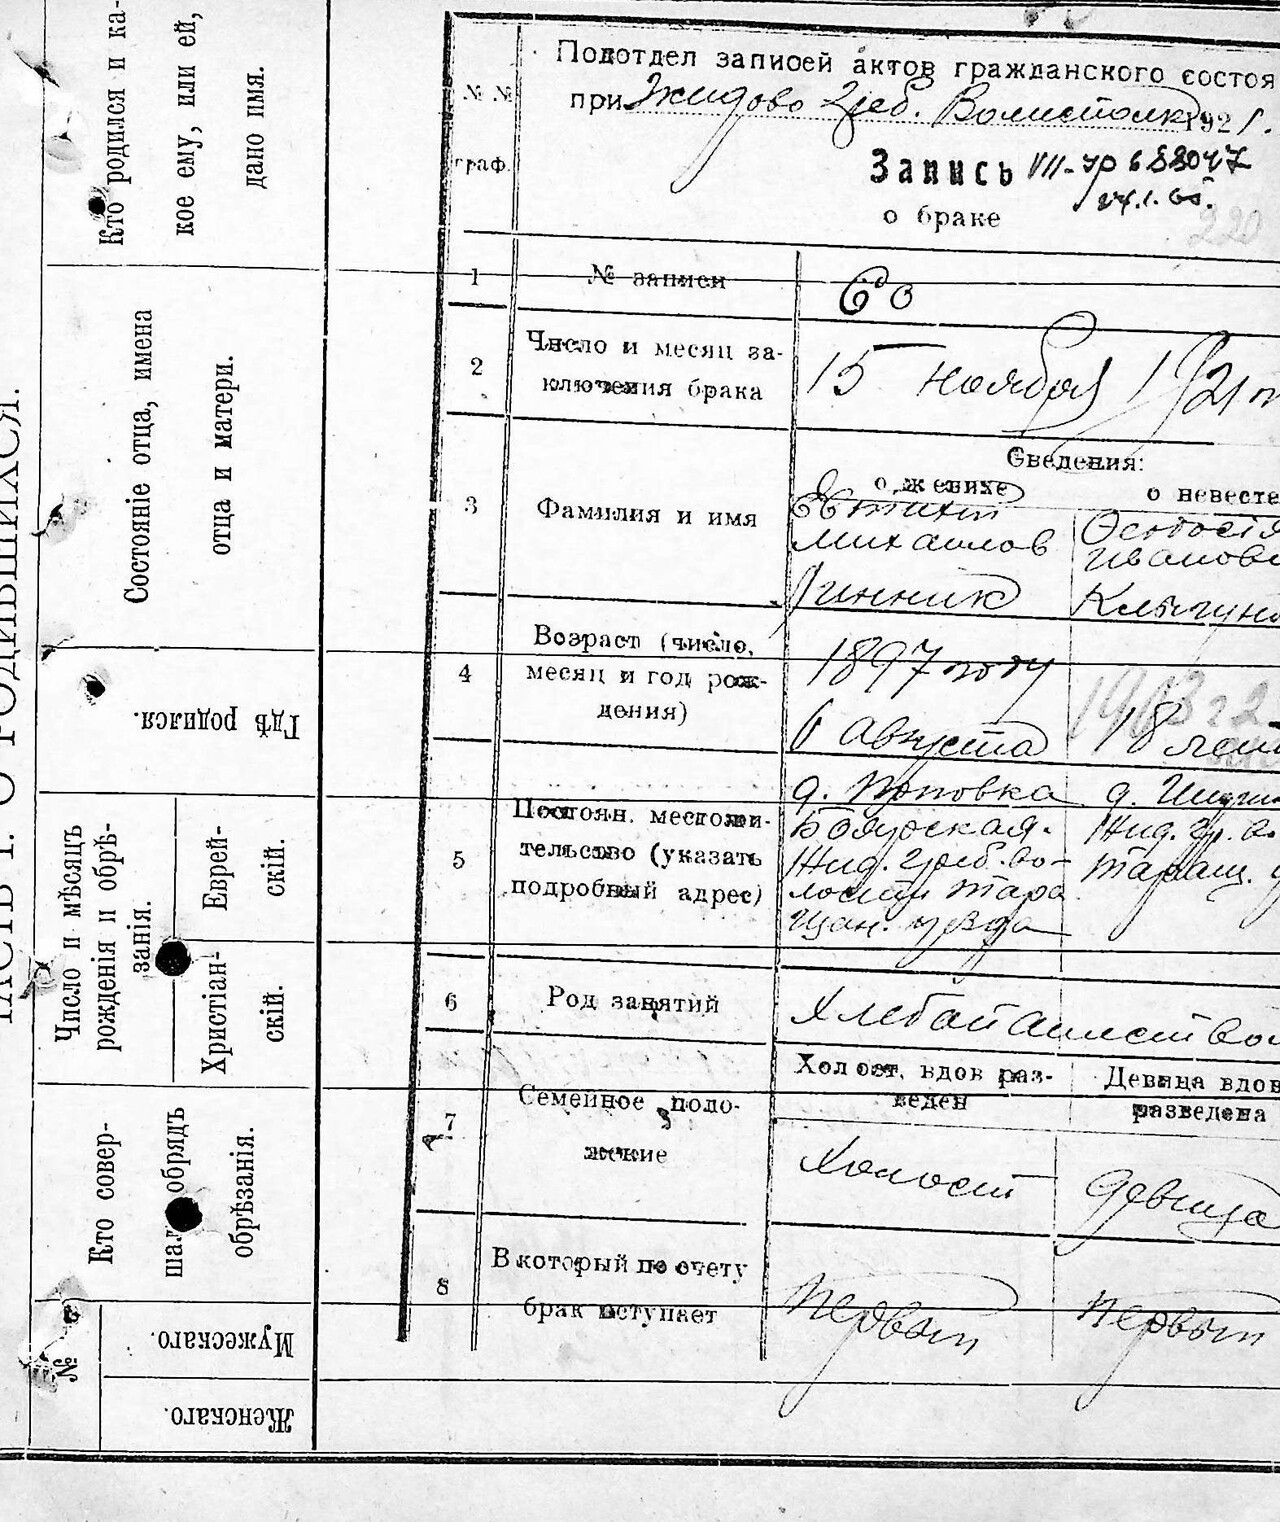 ЧАСТЬ I. О РОДИВШИХСЯ.
Кто родился и ка-
кое ему, или ей,
дано имя.
Состояніе отца, имена
отца и матери.
Гдѣ родился.
Число и мѣсяцъ
рожденія и обрѣ-
занія.
Еврей-
скій.
Христіан-
скій.
Кто совер-
шалъ обрядъ
обрѣзанія.
№
Мужескаго.
Женскаго.
№ №
граф.
Подотдел записей актов гражданского состоя
при Жидово Греб. Волисполк 1921 г.
Запись
о браке
220
1 № записи 60
2 Число и месяц за-
ключения брака
15 ноября 1921 г
Сведения:
о женихе о невесте
3 Фамилия и имя
Евтихий
Михаилов
Линник
Феодосія
Ивановн
4 Возраст (число,
месяц и год рож-
дения)
1897 году
6 августа
1903 г
18 лет
5 Постоян. местожи-
тельство (указать
подробный адрес)
д. Поповка
Боярская
Жид. Греб. во-
лости Тара
щан. уезда
Жид. Гр. в.
Таращ. у
6 Род занятий
Хлебопашество
7 Семейное поло-
жение
Холост, вдов раз-
веден
Девица вдов
разведена
Холост девица
8 В который по счету
брак вступает
Первый Первый